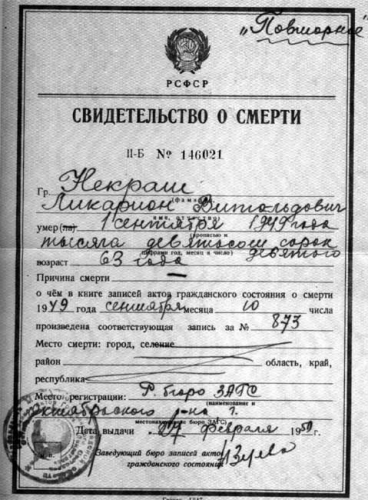 „Повторное"
РСФСР
СВИДЕТЕЛЬСТВО О СМЕРТИ
II-Б № 146021
Гр. Некраш
(фамилия)
Ликарион Витольдович
(имя, отчество)
умер(ла) 1 сентября 1949 года
(прописью и
тысяча девятьсот сорок
цифрами год, месяц и число) девятого
возраст 63 года
Причина смерти —
о чём в книге записей актов гражданского состояния о смерти
1949 года сентября месяца 10 числа
произведена соответствующая запись за № 873
Место смерти: город, селение
район область, край,
республика
Место регистрации: Р. бюро ЗАГС
(наименование и
Октябрьского р-на г.
местонахождение бюро ЗАГС)
Дата выдачи февраля 195 г.
Заведующий бюро записей актов
гражданского состояния